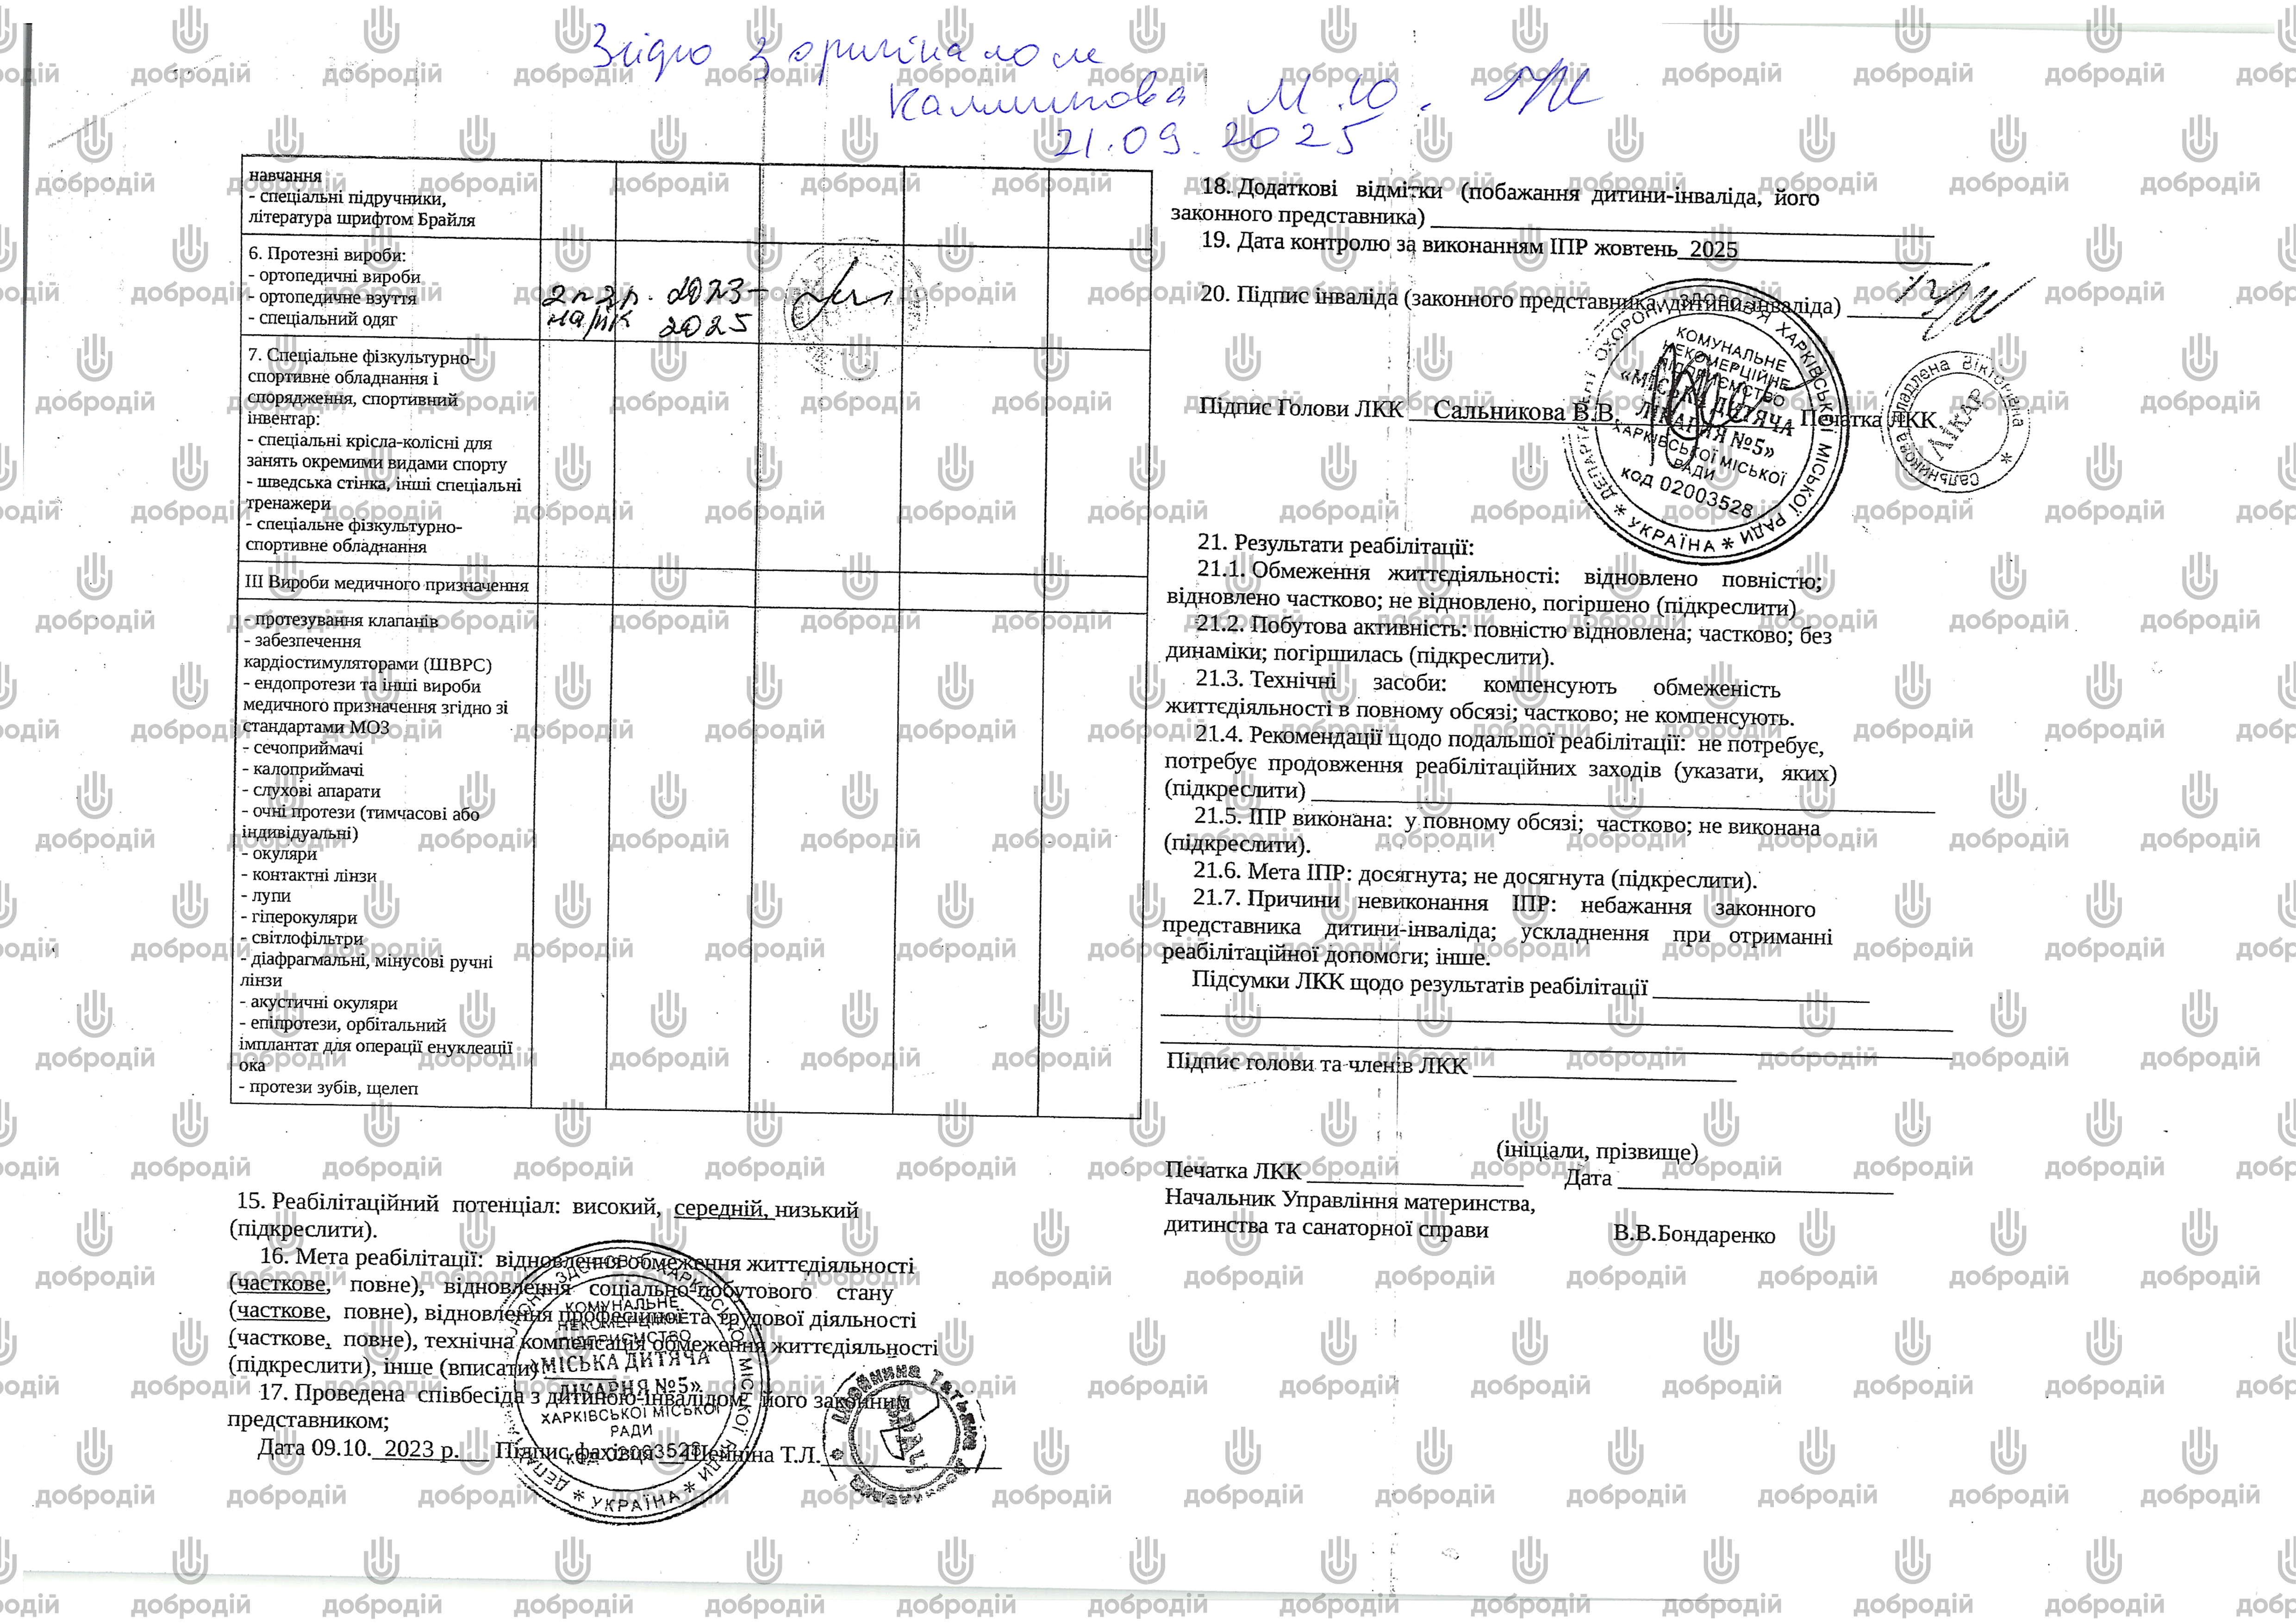 Згідно з оригіналом
Калминкова М.Ю.
21.09.2025
навчання
- спеціальні підручники,
література шрифтом Брайля
6. Протезні вироби:
- ортопедичні вироби
- ортопедичне взуття
- спеціальний одяг
2п зр. 2023-
на рік 2025
7. Спеціальне фізкультурно-
спортивне обладнання і
спорядження, спортивний
інвентар:
- спеціальні крісла-колісні для
занять окремими видами спорту
- шведська стінка, інші спеціальні
тренажери
- спеціальне фізкультурно-
спортивне обладнання
ІІІ Вироби медичного призначення
- протезування клапанів
- забезпечення
кардіостимуляторами (ШВРС)
- ендопротези та інші вироби
медичного призначення згідно зі
стандартами МОЗ
- сечоприймачі
- калоприймачі
- слухові апарати
- очні протези (тимчасові або
індивідуальні)
- окуляри
- контактні лінзи
- лупи
- гіперокуляри
- світлофільтри
- діафрагмальні, мінусові ручні
лінзи
- акустичні окуляри
- епіпротези, орбітальний
імплантат для операції енуклеації
ока
- протези зубів, щелеп
15. Реабілітаційний потенціал: високий, середній, низький
(підкреслити).
16. Мета реабілітації: відновлення обмеження життєдіяльності
(часткове, повне), відновлення соціально-побутового стану
(часткове, повне), відновлення професійної та трудової діяльності
(часткове, повне), технічна компенсація обмеження життєдіяльності
(підкреслити), інше (вписати)
17. Проведена співбесіда з дитиною-інвалідом, його законним
представником;
Дата 09.10. 2023 р. Підпис фахівця Шейніна Т.Л.
КОМУНАЛЬНЕ
НЕКОМЕРЦІЙНЕ
ПІДПРИЄМСТВО
«МІСЬКА ДИТЯЧА
ЛІКАРНЯ №5»
ХАРКІВСЬКОЇ МІСЬКОЇ
РАДИ
код 02003528
УКРАЇНА
18. Додаткові відмітки (побажання дитини-інваліда, його
законного представника)
19. Дата контролю за виконанням ІПР жовтень 2025
20. Підпис інваліда (законного представника дитини-інваліда)
Підпис Голови ЛКК Сальникова В.В. Печатка ЛКК
ДЕПАРТАМЕНТ ОХОРОНИ ЗДОРОВ'Я ХАРКІВСЬКОЇ МІСЬКОЇ РАДИ * УКРАЇНА *
КОМУНАЛЬНЕ
НЕКОМЕРЦІЙНЕ
ПІДПРИЄМСТВО
«МІСЬКА ДИТЯЧА
ЛІКАРНЯ №5»
ХАРКІВСЬКОЇ МІСЬКОЇ
РАДИ
код 02003528
Сальникова Владлена Вікторівна
ЛІКАР
21. Результати реабілітації:
21.1. Обмеження життєдіяльності: відновлено повністю;
відновлено частково; не відновлено, погіршено (підкреслити)
21.2. Побутова активність: повністю відновлена; частково; без
динаміки; погіршилась (підкреслити).
21.3. Технічні засоби: компенсують обмеженість
життєдіяльності в повному обсязі; частково; не компенсують.
21.4. Рекомендації щодо подальшої реабілітації: не потребує,
потребує продовження реабілітаційних заходів (указати, яких)
(підкреслити)
21.5. ІПР виконана: у повному обсязі; частково; не виконана
(підкреслити).
21.6. Мета ІПР: досягнута; не досягнута (підкреслити).
21.7. Причини невиконання ІПР: небажання законного
представника дитини-інваліда; ускладнення при отриманні
реабілітаційної допомоги; інше.
Підсумки ЛКК щодо результатів реабілітації
Підпис голови та членів ЛКК
(ініціали, прізвище)
Печатка ЛКК Дата
Начальник Управління материнства,
дитинства та санаторної справи В.В.Бондаренко
добродій